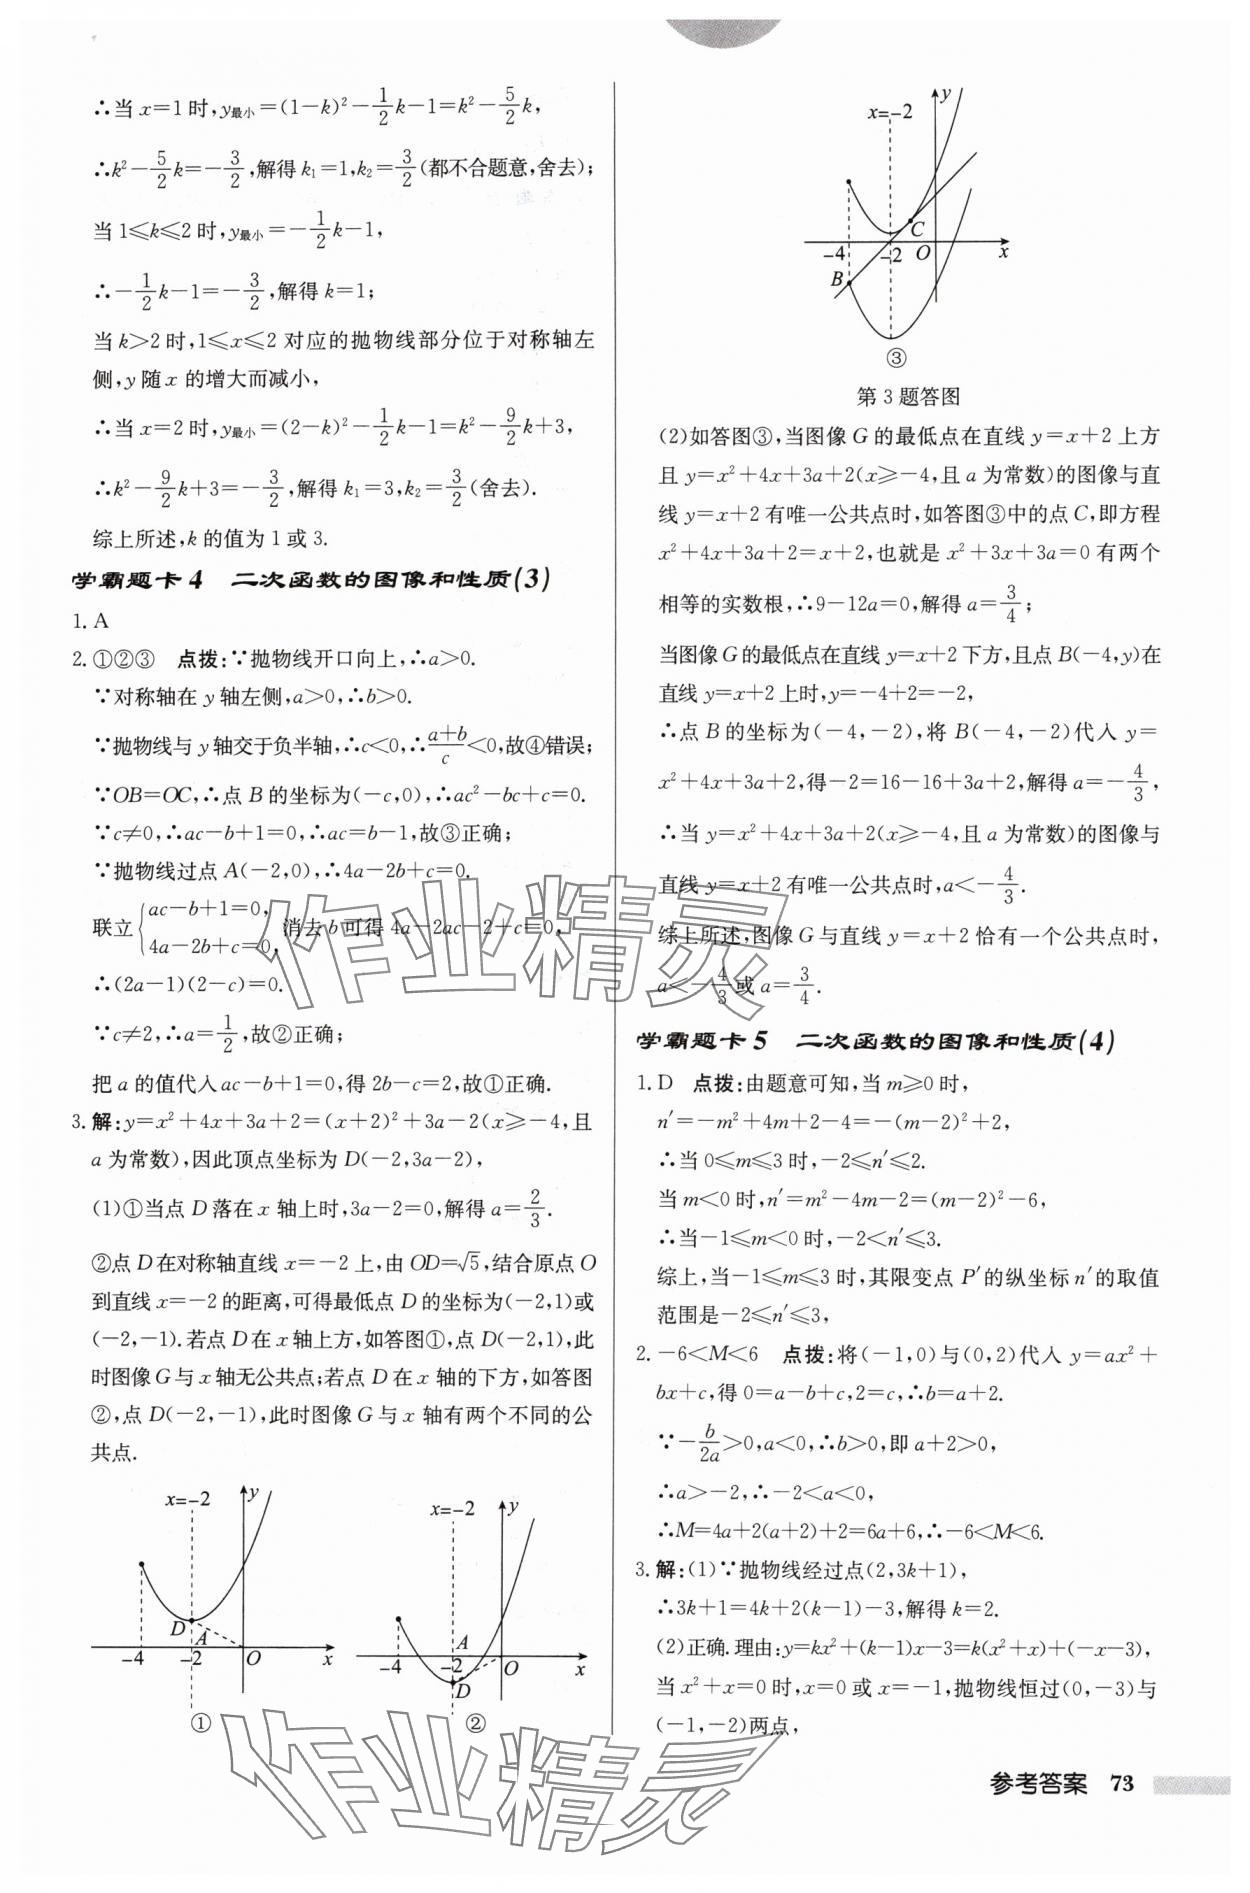 ∴当 x=1 时,y最小=(1-k)²-1/2k-1=k²-5/2k,
∴k²-5/2k=-3/2,解得 k₁=1,k₂=3/2(都不合题意,舍去);
当 1≤k≤2 时,y最小=-1/2k-1,
∴-1/2k-1=-3/2,解得 k=1;
当 k>2 时,1≤x≤2 对应的抛物线部分位于对称轴左
侧,y 随 x 的增大而减小,
∴当 x=2 时,y最小=(2-k)²-1/2k-1=k²-9/2k+3,
∴k²-9/2k+3=-3/2,解得 k₁=3,k₂=3/2(舍去).
综上所述,k 的值为 1 或 3.
学霸题卡 4 二次函数的图像和性质(3)
1. A
2. ①②③ 点拨:∵抛物线开口向上,∴a>0.
∵对称轴在 y 轴左侧,a>0,∴b>0.
∵抛物线与 y 轴交于负半轴,∴c<0,∴(a+b)/c<0,故④错误;
∵OB=OC,∴点 B 的坐标为(-c,0),∴ac²-bc+c=0.
∵c≠0,∴ac-b+1=0,∴ac=b-1,故③正确;
∵抛物线过点 A(-2,0),∴4a-2b+c=0.
联立{ac-b+1=0, 4a-2b+c=0, 消去 b 可得 4a-2ac-2+c=0,
∴(2a-1)(2-c)=0.
∵c≠2,∴a=1/2,故②正确;
把 a 的值代入 ac-b+1=0,得 2b-c=2,故①正确.
3. 解:y=x²+4x+3a+2=(x+2)²+3a-2(x≥-4,且
a 为常数),因此顶点坐标为 D(-2,3a-2),
(1)①当点 D 落在 x 轴上时,3a-2=0,解得 a=2/3.
②点 D 在对称轴直线 x=-2 上,由 OD=√5,结合原点 O
到直线 x=-2 的距离,可得最低点 D 的坐标为(-2,1)或
(-2,-1).若点 D 在 x 轴上方,如答图①,点 D(-2,1),此
时图像 G 与 x 轴无公共点;若点 D 在 x 轴的下方,如答图
②,点 D(-2,-1),此时图像 G 与 x 轴有两个不同的公
共点.
x=-2 y
D A
-4 -2 O x
①
x=-2 y
A
-4 -2 O x
D
②
x=-2 y
C
-4 -2 O x
B
③
第 3 题答图
(2)如答图③,当图像 G 的最低点在直线 y=x+2 上方
且 y=x²+4x+3a+2(x≥-4,且 a 为常数)的图像与直
线 y=x+2 有唯一公共点时,如答图③中的点 C,即方程
x²+4x+3a+2=x+2,也就是 x²+3x+3a=0 有两个
相等的实数根,∴9-12a=0,解得 a=3/4;
当图像 G 的最低点在直线 y=x+2 下方,且点 B(-4,y)在
直线 y=x+2 上时,y=-4+2=-2,
∴点 B 的坐标为(-4,-2),将 B(-4,-2)代入 y=
x²+4x+3a+2,得-2=16-16+3a+2,解得 a=-4/3,
∴当 y=x²+4x+3a+2(x≥-4,且 a 为常数)的图像与
直线 y=x+2 有唯一公共点时,a<-4/3.
综上所述,图像 G 与直线 y=x+2 恰有一个公共点时,
a<-4/3或 a=3/4.
学霸题卡 5 二次函数的图像和性质(4)
1. D 点拨:由题意可知,当 m≥0 时,
n′=-m²+4m+2-4=-(m-2)²+2,
∴当 0≤m≤3 时,-2≤n′≤2.
当 m<0 时,n′=m²-4m-2=(m-2)²-6,
∴当-1≤m<0 时,-2<n′≤3.
综上,当-1≤m≤3 时,其限变点 P′的纵坐标 n′的取值
范围是-2≤n′≤3,
2. -6<M<6 点拨:将(-1,0)与(0,2)代入 y=ax²+
bx+c,得 0=a-b+c,2=c,∴b=a+2.
∵-b/2a>0,a<0,∴b>0,即 a+2>0,
∴a>-2,∴-2<a<0,
∴M=4a+2(a+2)+2=6a+6,∴-6<M<6.
3. 解:(1)∵抛物线经过点(2,3k+1),
∴3k+1=4k+2(k-1)-3,解得 k=2.
(2)正确.理由:y=kx²+(k-1)x-3=k(x²+x)+(-x-3),
当 x²+x=0 时,x=0 或 x=-1,抛物线恒过(0,-3)与
(-1,-2)两点,
参考答案 73
作业精灵
作业精灵